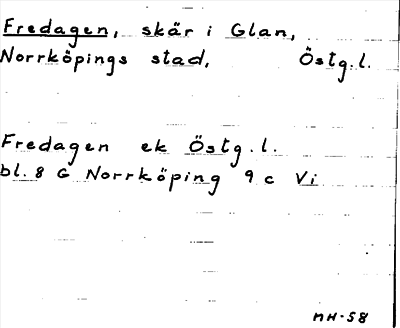 Fredagen, skär i Glan,
Norrköpings stad, Östg.l.
Fredagen ek Östg.l.
bl. 8 G Norrköping 9 c Vi
MH-58